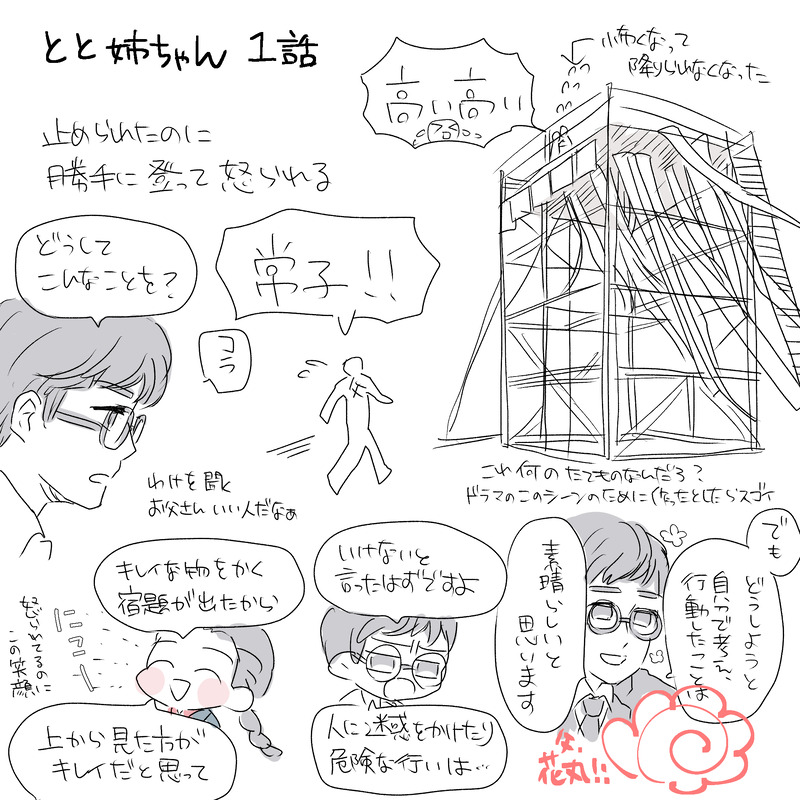 とと姉ちゃん 1話
小怖くなって
降りられなくなった
高い高い
止められたのに
勝手に登って怒られる
どうして
こんなことを?
常子!!
コラ
わけを聞く
お父さんいい人だなぁ
これ何のたてものなんだろ?
ドラマのこのシーンのためにつくったとしたらスゴイ
キレイな物をかく
宿題が出たから
怒られてるのに
この笑顔
にこーっ
上から見た方が
キレイだと思って
いけないと
言ったはずですよ
人に迷惑をかけたり
危険な行いは…
でも
どうしようと
自分で考え、
行動したことは
素晴らしいと
思います
父、
花丸!!